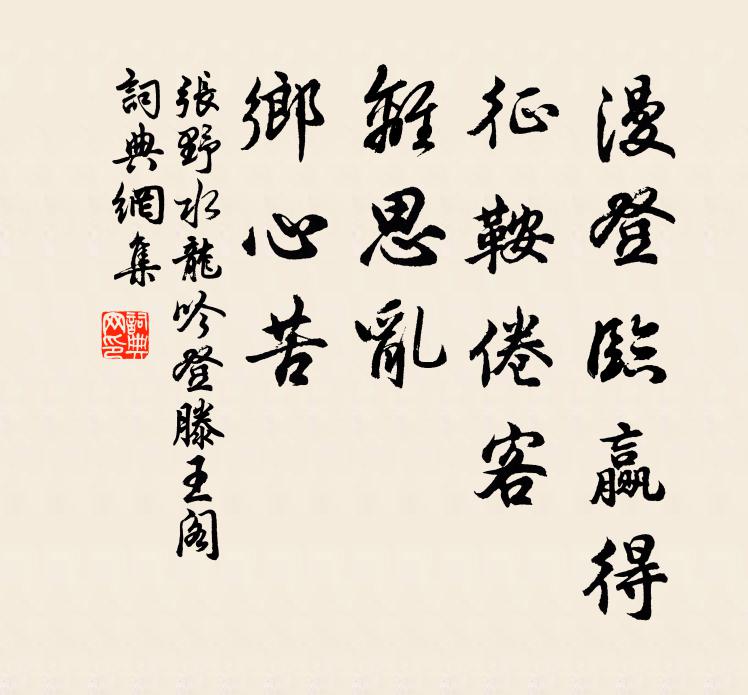 漫登臨贏得
征鞍倦客
離思亂
鄉心苦
張野水龍吟登滕王阁
詞典網集
詞典
网印